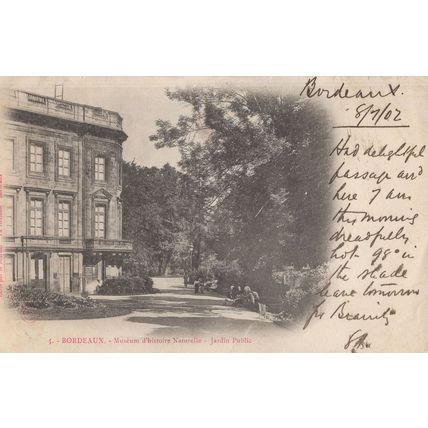 Bordeaux.
8/7/02
Had delightful
passage and
here 7 am
this morning
dreadfully
hot 98° in
the shade
leave tomorrow
for
5. - BORDEAUX. - Muséum d'histoire Naturelle - Jardin Public